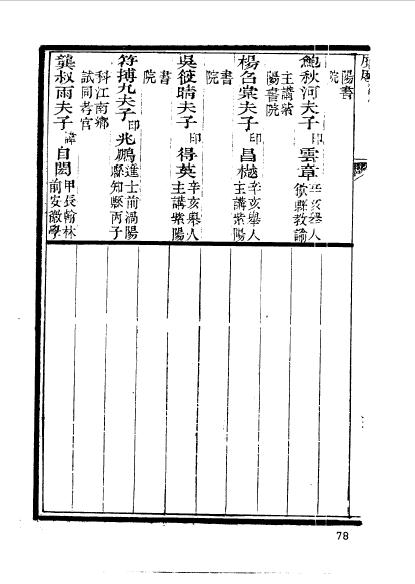 陽書
院
鮑秋河夫子印雲章辛亥舉人
歙縣教諭
主講紫
陽書院
楊名棠夫子印昌樾辛亥舉人
主講紫陽
書
院
吳筱晴夫子印得英辛亥舉人
主講紫陽
書
院
符搏九夫子印兆鵬進士前渦陽
縣知縣丙子
科江南鄉
試同考官
龔叔雨夫子諱自閎甲辰翰林
前安徽學
78